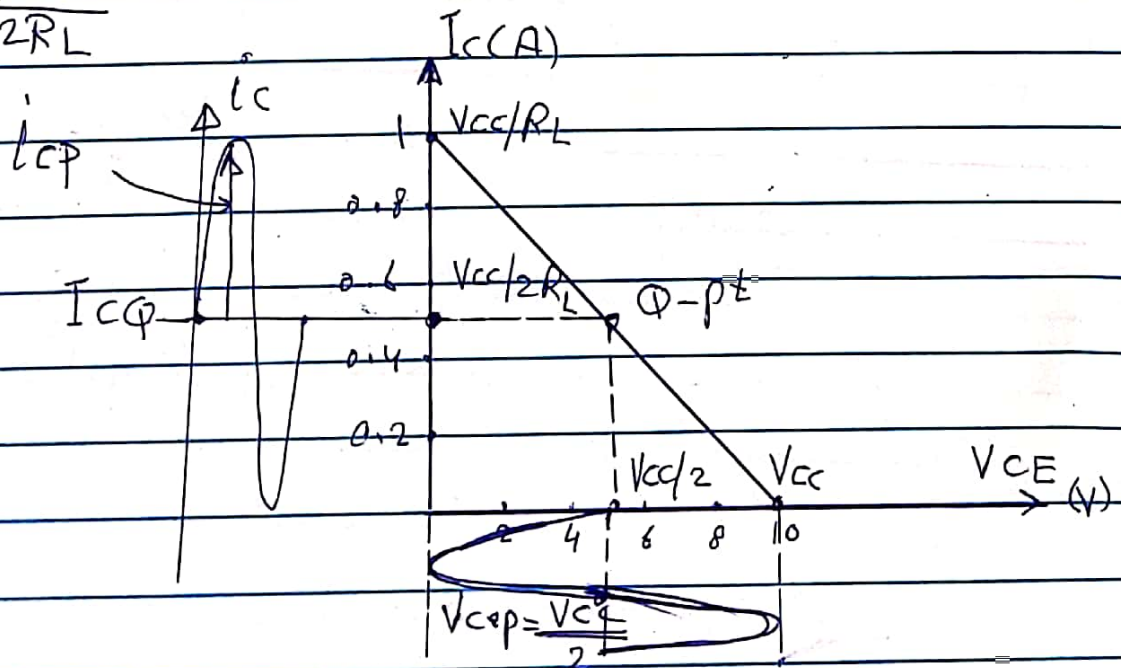 2RL
Ic(A)
ic
icp
1 Vcc/RL
0.8
0.6 Vcc/2RL Q-pt
ICQ
0.4
0.2
Vcc/2 Vcc VCE (V)
2 4 6 8 10
Vcep = Vcc
2